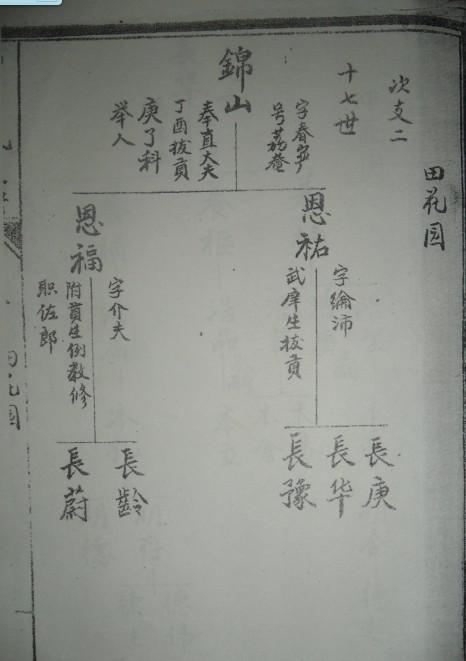 田花园
次支二
十七世
錦山
字春寧
号荔菴
奉直大夫
丁酉拔貢
庚子科
举人
恩祐
字綸沛
武庠生拔貢
恩福
字介夫
附貢生例敎修
职佐郎
長庚
長华
長豫
長齡
長蔚
田花园